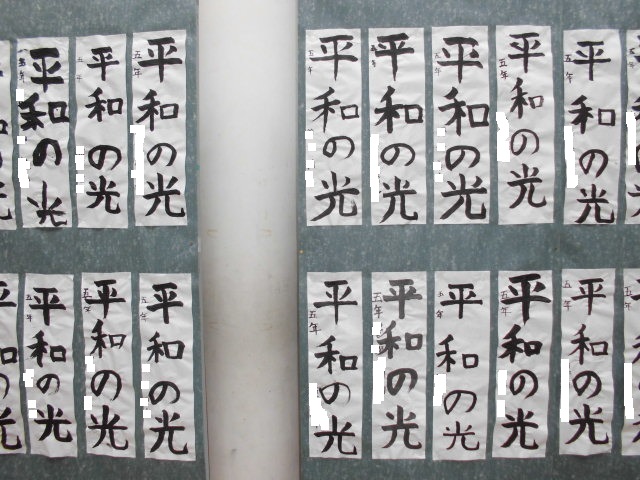 平和の光
五年
平和の光
五年
平和の光
五年
平和の光
五年
平和の光
五年
平和の光
五年
平和の光
五年
平和の光
五年
平和の光
五年
平和の光
五年
平和の光
五年
平和の光
五年
平和の光
五年
平和の光
五年
平和の光
五年
平和の光
五年